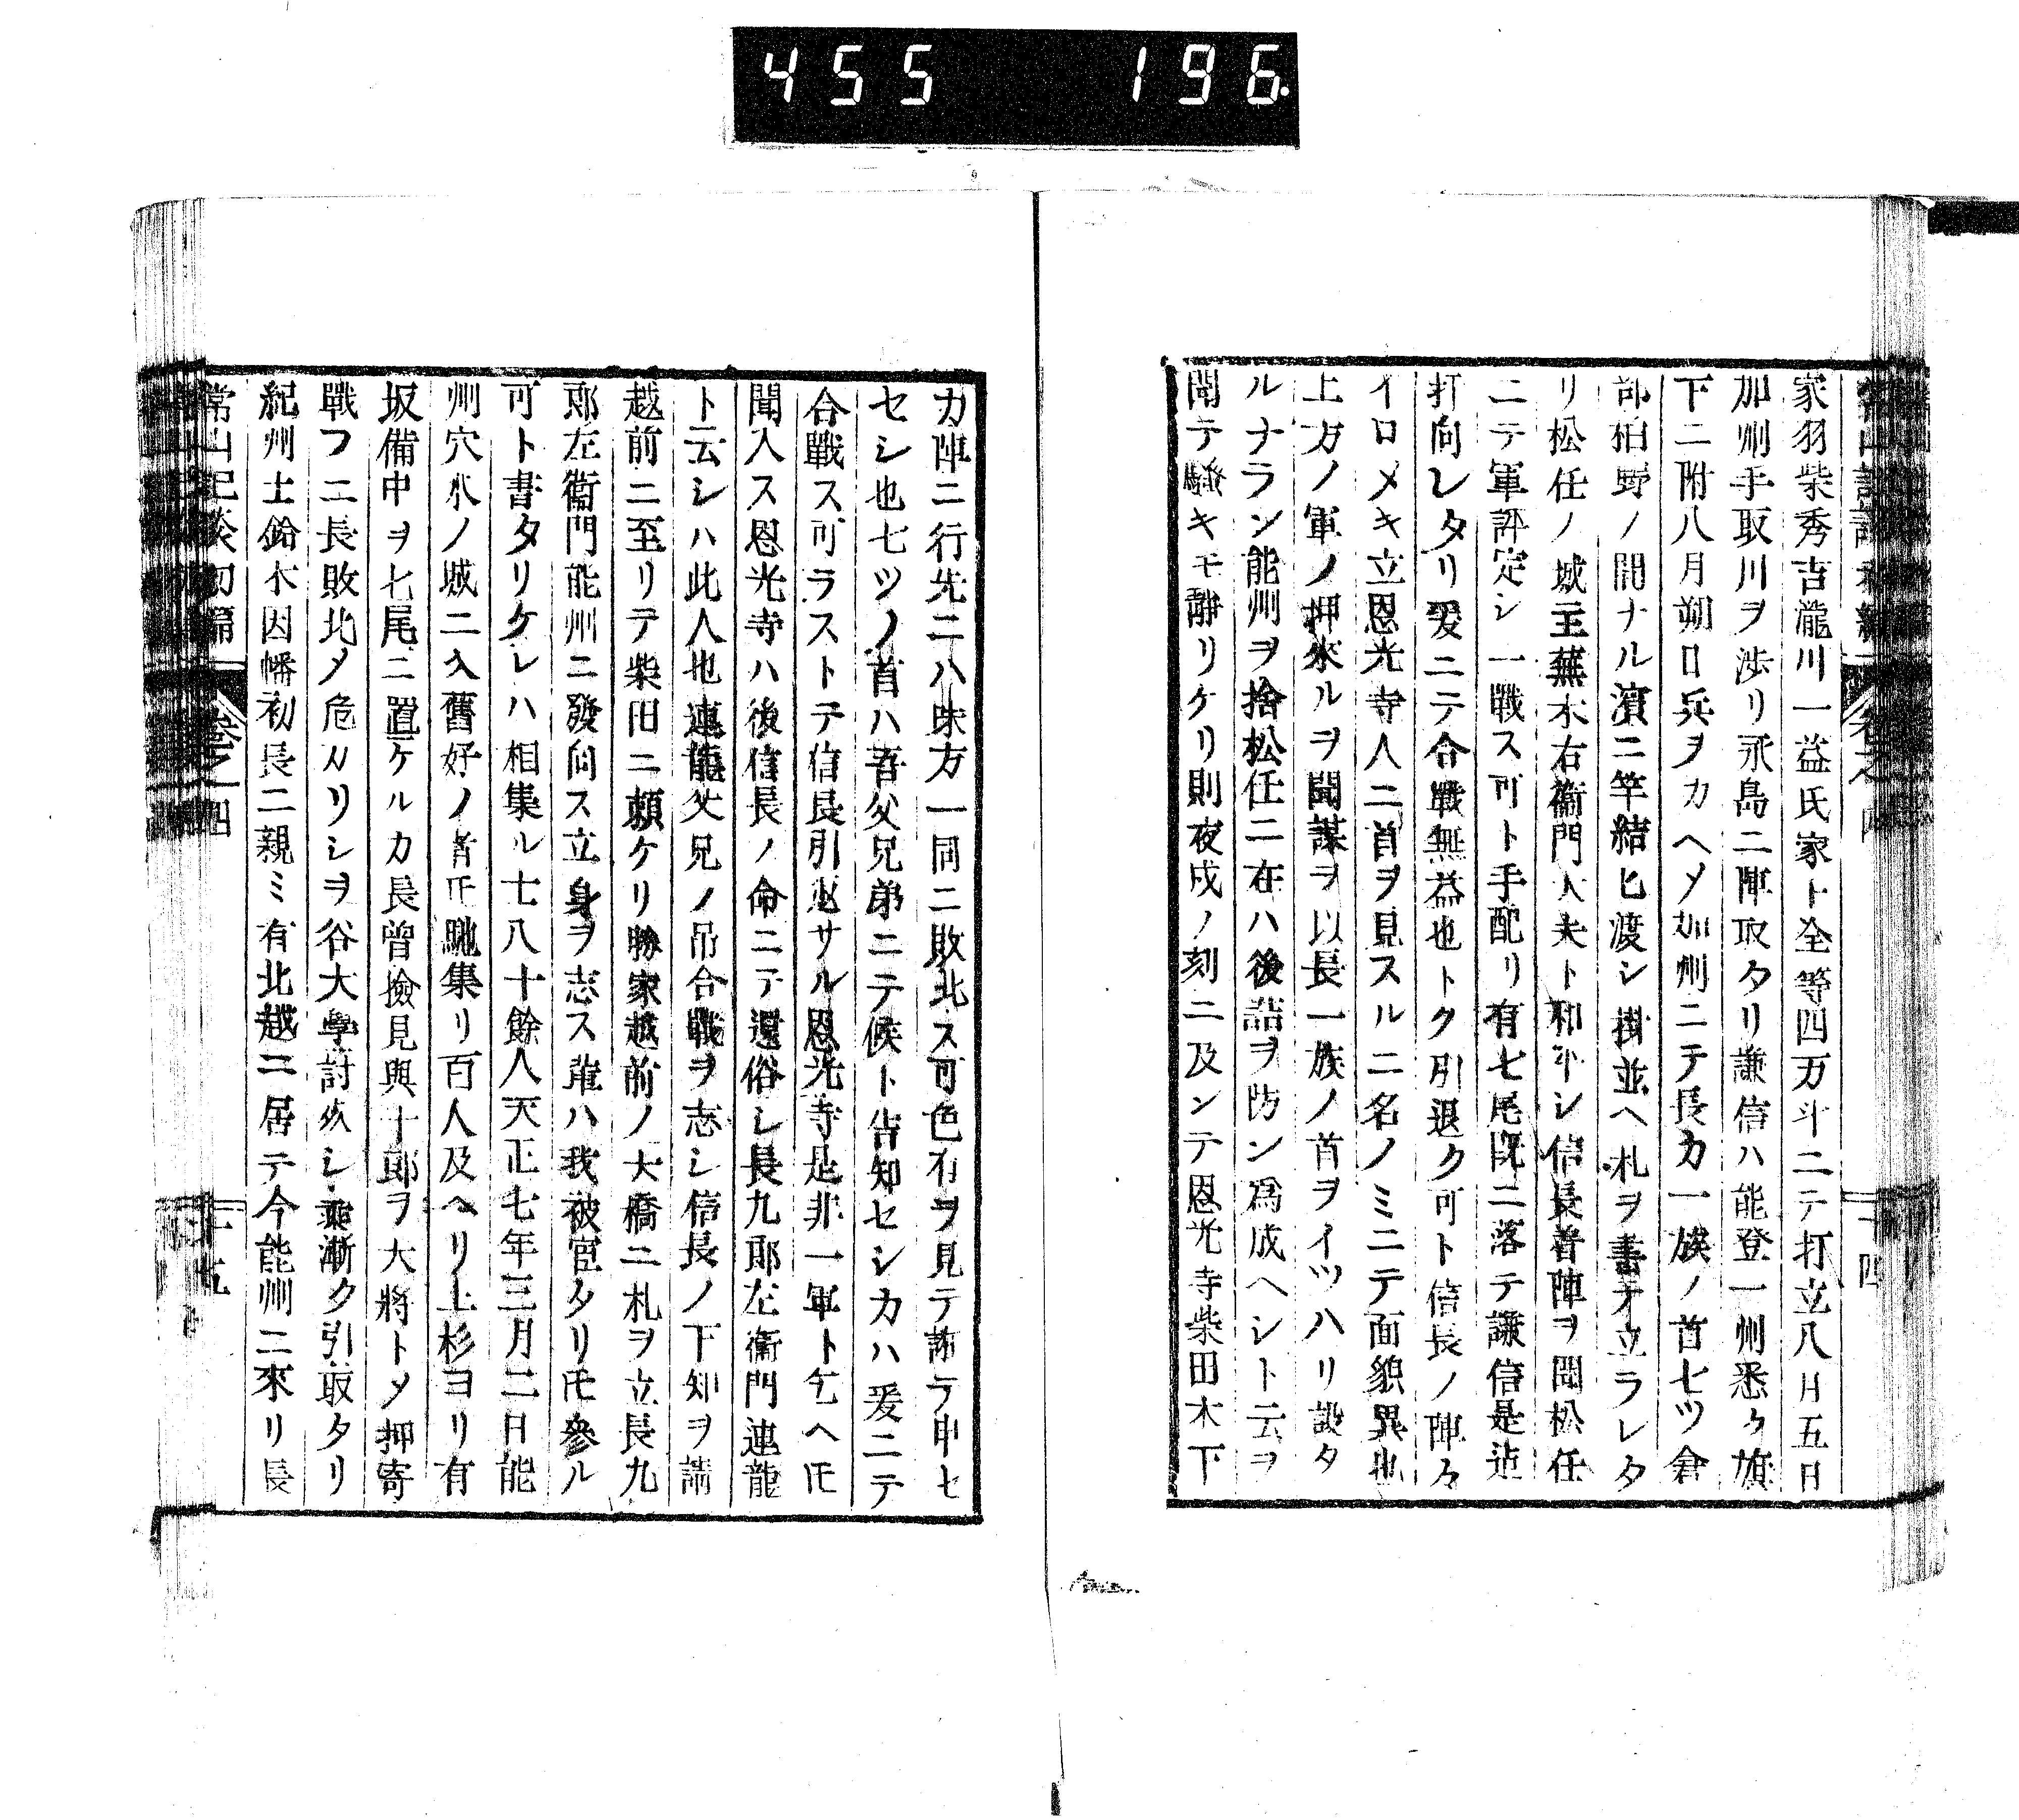 455 196
家羽柴秀吉瀧川一益氏家ト全等四万斗ニテ打立八月五日
加州手取川ヲ渉リ永島ニ陣取タリ謙信ハ能登一州悉ク旗
下ニ附八月朔日兵ヲカヘメ加州ニテ長カ一族ノ首七ツ倉
部柏野ノ間ナル濱ニ竿結ヒ渡シ掛並ヘ札ヲ書テ立ラレタ
リ松任ノ城主蕪木右衞門大夫ト和平シ信長着陣ヲ聞松任
ニテ軍評定シ一戰ス可ト手配リ有七尾既ニ落テ謙信是迠
打向レタリ爰ニテ合戰無益也トク引退ク可ト信長ノ陣々
イロメキ立恩光寺人ニ首ヲ見スルニ名ノミニテ面貌異也
上方ノ軍ノ押來ルヲ聞謀ヲ以長一族ノ首ヲイツハリ設タ
ルナラン能州ヲ捨松任ニ在ハ後詰ヲ防ン爲成ヘシト云ヲ
聞テ騒キモ静リケリ則夜戍ノ刻ニ及ンテ恩光寺柴田木下
カ陣ニ行先ニハ味方一同ニ敗北ス可色有ヲ見テ諦テ申セ
セシ也七ツノ首ハ吾父兄弟ニテ候ト告知セシカハ爰ニテ
合戰ス可ラストテ信長引返サル恩光寺是非一軍ト乞ヘ𪜈
聞入ス恩光寺ハ後信長ノ命ニテ還俗シ長九郎左衞門連龍
ト云シハ此人也連龍父兄ノ吊合戰ヲ志シ信長ノ下知ヲ請
越前ニ至リテ柴田ニ頼ケリ勝家越前ノ大橋ニ札ヲ立長九
郎左衞門能州ニ發向ス立身ヲ志ス輩ハ我被官タリ𪜈參ル
可ト書タリケレハ相集ル七八十餘人天正七年三月二日能
州穴水ノ城ニ入舊好ノ者𪜈馳集リ百人及ヘリ上杉ヨリ有
坂備中ヲ七尾ニ置ケルカ長曽撿見與十郎ヲ大將トメ押寄
戰フニ長敗北メ危カリシヲ谷大學討死シ漸ク引取タリ
紀州士鈴木因幡初長ニ親ミ有北越ニ居テ今能州ニ來リ長
常山紀談初篇 卷之四